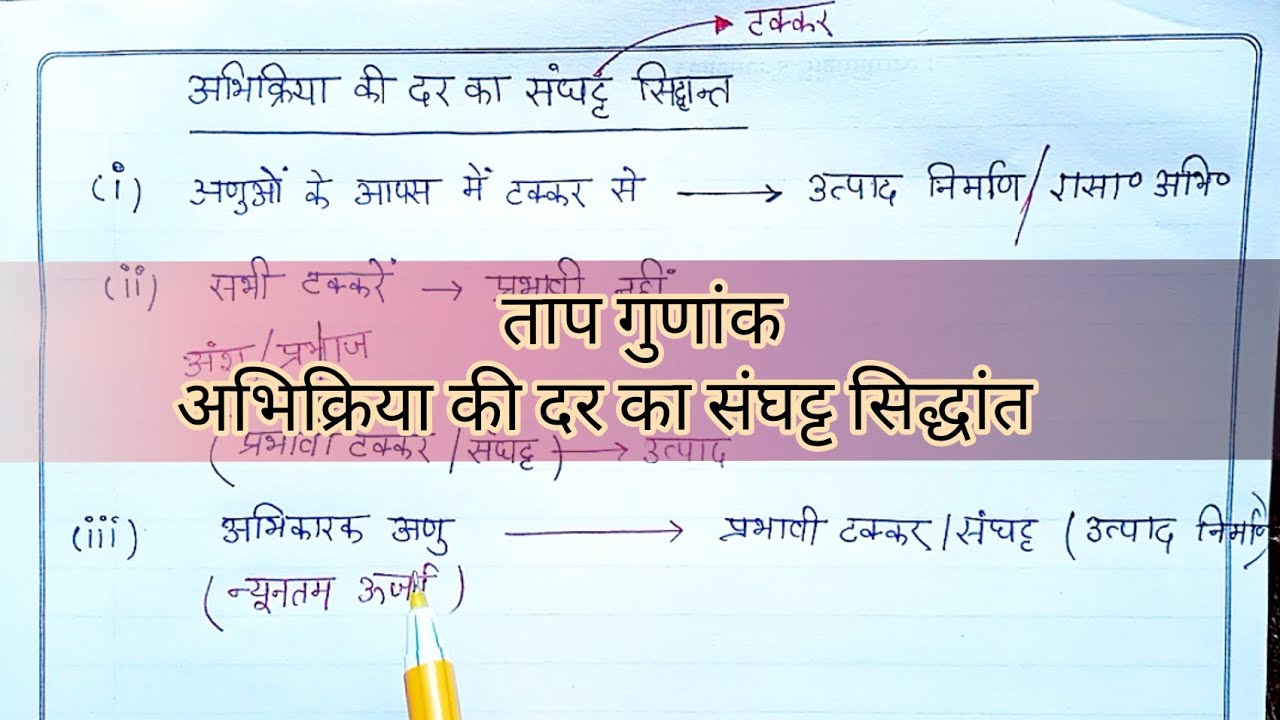 टक्कर
अभिक्रिया की दर का संघट्ट सिद्धान्त
(i) अणुओं के आपस में टक्कर से → उत्पाद निर्माण / रासा० अभि०
(ii) सभी टक्करें → प्रभावी नहीं
ताप गुणांक
अंश / प्रभाज
अभिक्रिया की दर का संघट्ट सिद्धांत
(प्रभावी टक्कर / संघट्ट) → उत्पाद
(iii) अभिकारक अणु → प्रभावी टक्कर / संघट्ट (उत्पाद निर्माण)
(न्यूनतम ऊर्जा)